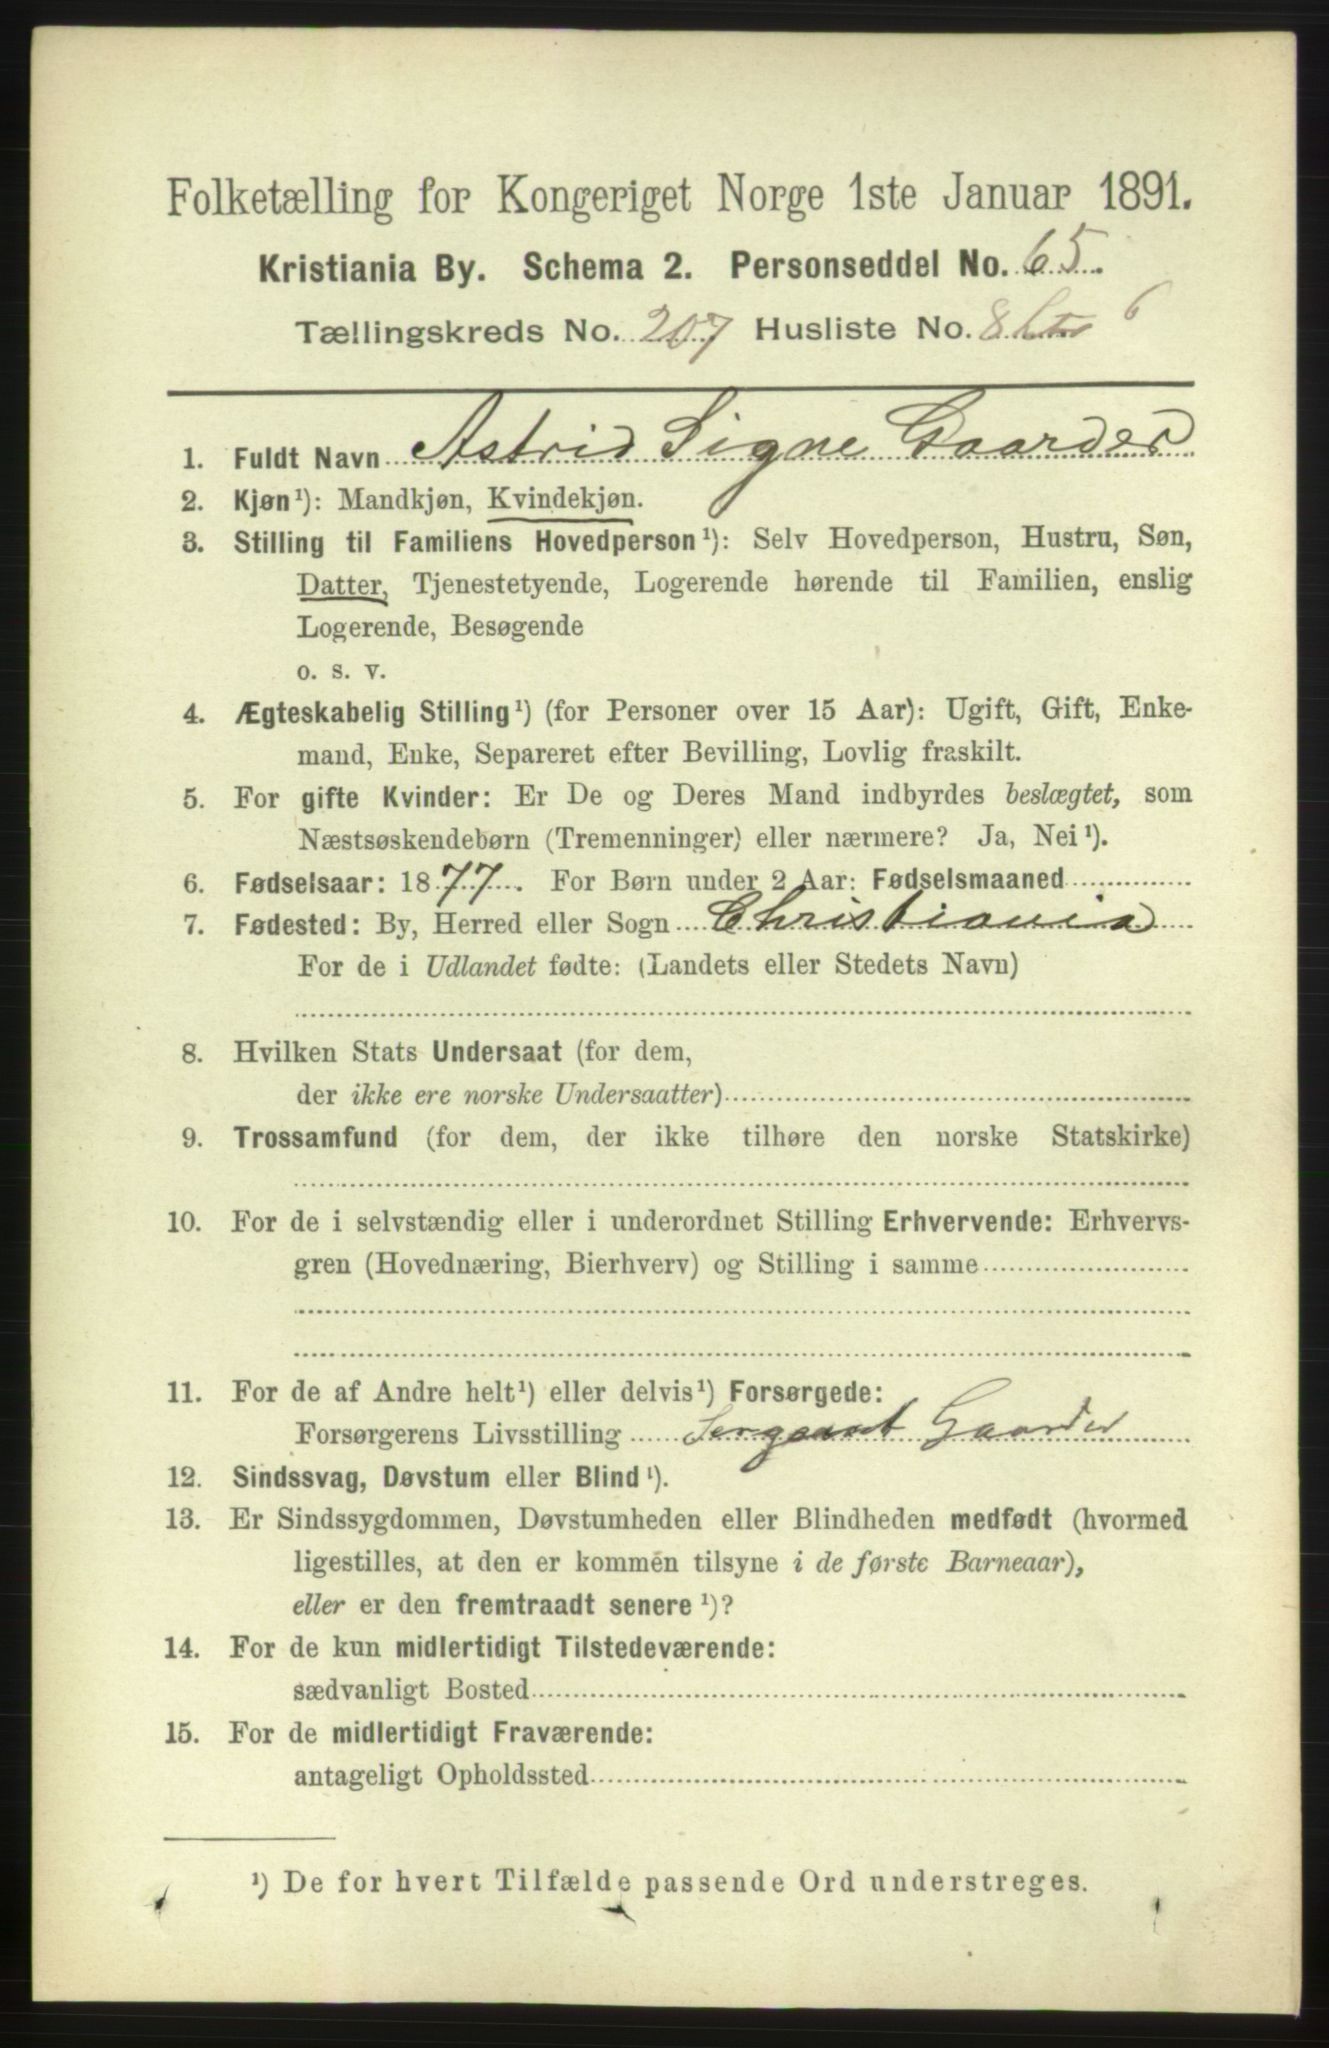 Folketælling for Kongeriget Norge 1ste Januar 1891.
Kristiania By. Schema 2. Personseddel No. 65.
Tællingskreds No. 207 Husliste No. 8 6
1. Fuldt Navn Astrid Signe Gaarder
2. Kjøn¹): Mandkjøn, Kvindekjøn.
3. Stilling til Familiens Hovedperson¹): Selv Hovedperson, Hustru, Søn,
Datter, Tjenestetyende, Logerende hørende til Familien, enslig
Logerende, Besøgende
o. s. v.
4. Ægteskabelig Stilling¹) (for Personer over 15 Aar): Ugift, Gift, Enke-
mand, Enke, Separeret efter Bevilling, Lovlig fraskilt.
5. For gifte Kvinder: Er De og Deres Mand indbyrdes beslægtet, som
Næstsøskendebørn (Tremenninger) eller nærmere? Ja, Nei¹).
6. Fødselsaar: 1877. For Børn under 2 Aar: Fødselsmaaned
7. Fødested: By, Herred eller Sogn Christiania
For de i Udlandet fødte: (Landets eller Stedets Navn)
8. Hvilken Stats Undersaat (for dem,
der ikke ere norske Undersaatter)
9. Trossamfund (for dem, der ikke tilhøre den norske Statskirke)
10. For de i selvstændig eller i underordnet Stilling Erhvervende: Erhvervs-
gren (Hovednæring, Bierhverv) og Stilling i samme
11. For de af Andre helt¹) eller delvis¹) Forsørgede:
Forsørgerens Livsstilling Sergeant Gaarder
12. Sindssvag, Døvstum eller Blind¹).
13. Er Sindssygdommen, Døvstumheden eller Blindheden medfødt (hvormed
ligestilles, at den er kommen tilsyne i de første Barneaar),
eller er den fremtraadt senere¹)?
14. For de kun midlertidigt Tilstedeværende:
sædvanligt Bosted
15. For de midlertidigt Fraværende:
antageligt Opholdssted
¹) De for hvert Tilfælde passende Ord understreges.